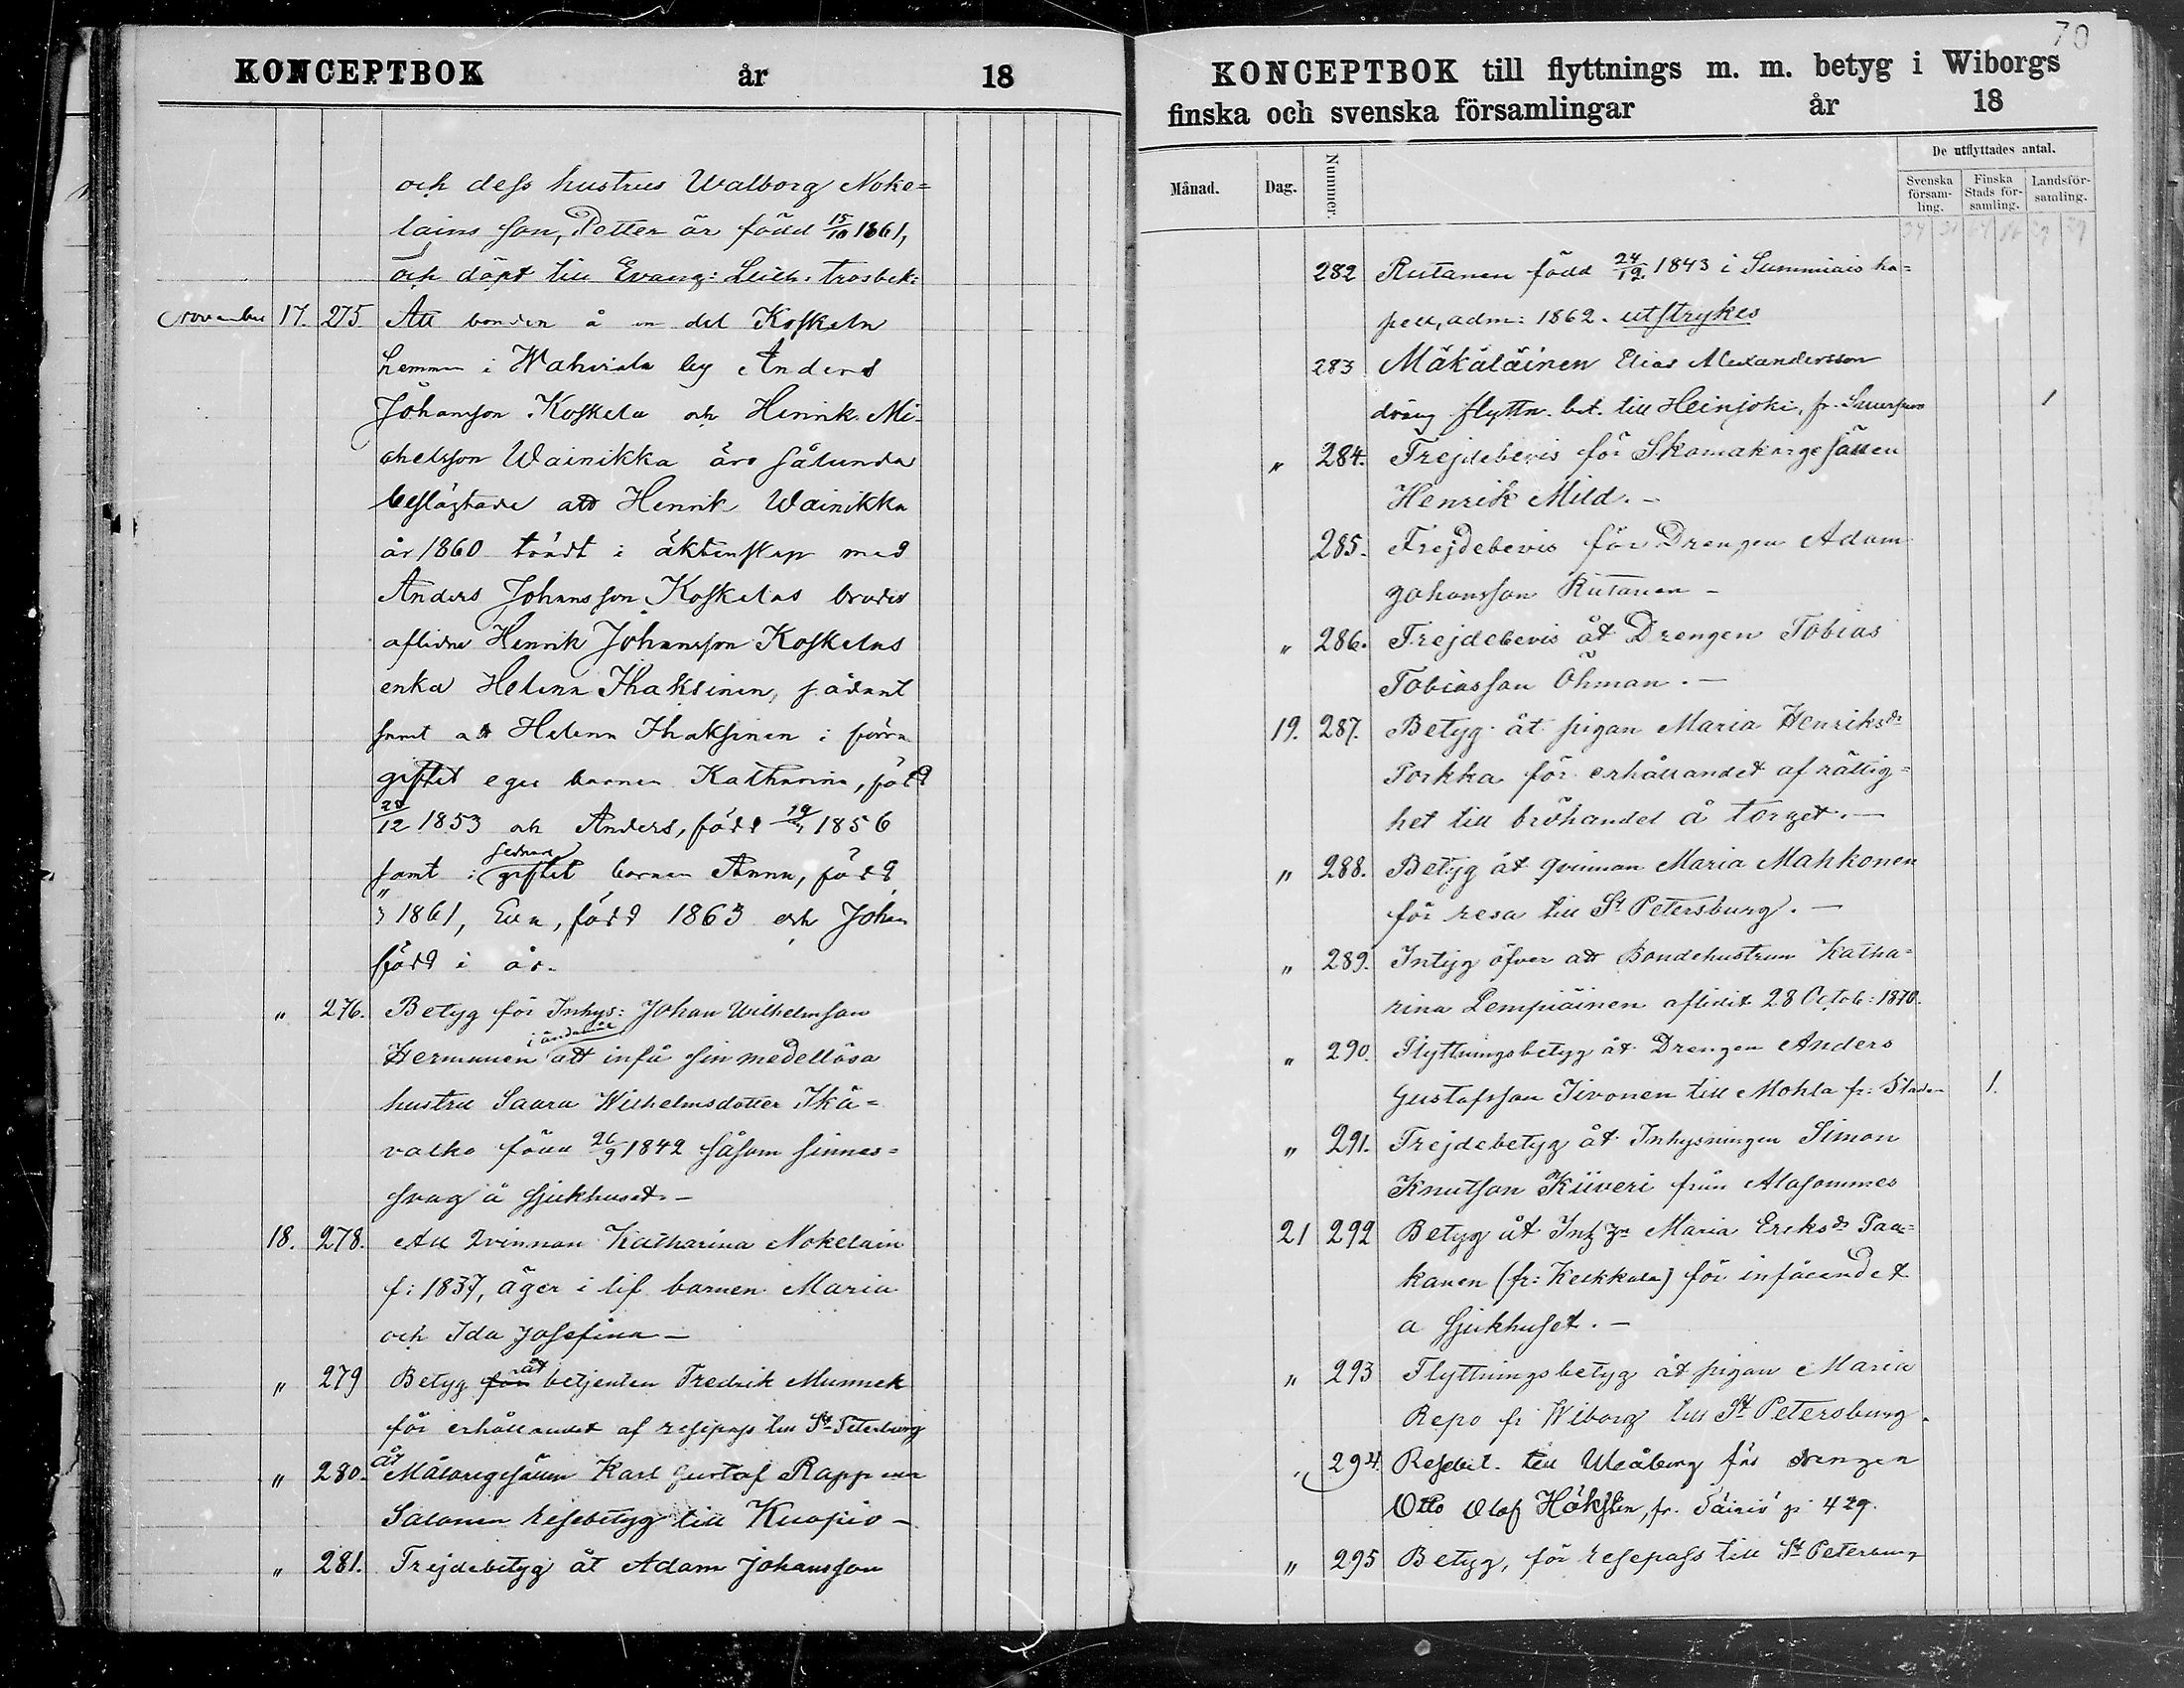 KONCEPTBOK år 18
och dess hustrus Walborg Noke=
lains son, Petter är född 15/10 1861,
och döpt till Evang: Luth. trosbek:
November 17. 275 Att bonden å en del Koskela
hemman i Wahviala by Anders
Johansson Koskela och Henrik Mi-
chelsson Wainikka äro sålunda
beslägtade att Henrik Wainikka
år 1860 trädt i äktenskap med
Anders Johansson Koskelas broders
aflidne Henrik Johansson Koskelas
enka Helena Ihaksinen,
samt att Helena Ihaksinen i förra
giftet eger barnen Katharina, född
12 1853 och Anders, född 1856
samt i sednare giftet barnen Anna, född
1861, Eva, född 1863 och Johan
född i år.
" 276. Betyg för Inhys: Johan Wilhelmsson
Hermunen i ändamål att infå sin medellösa
hustru Saara Wilhelmsdotter Ikä=
valko född 26/9 1842 såsom sinnes=
svag å sjukhuset.–
18. 278. Att Qvinnan Katharina Nokelain
f: 1837, äger i lif barnen Maria
och Ida Josefina –
" 279 Betyg för åt betjenten Fredrik Munnek
för erhållandet af resepass till St. Petersburg
" 280. åt Målaregesällen Karl Gustaf Rapp
Salonen resebetyg till Kuopio –
" 281. Frejdebetyg åt Adam Johansson
70
KONCEPTBOK till flyttnings m. m. betyg i Wiborgs
finska och svenska församlingar år 18
Månad. Dag. Nummer. De utflyttades antal.
Svenska försam-ling. Finska Stads för-samling. Landsför-samling.
282 Rutanen född 24/12 1843 i Summiais ka=
pell, adm: 1862. utstrykes
283 Mäkäläinen Elias Alexandersson
dräng flyttn. bet. till Heinjoki, fr. 1
" 284. Frejdebevis för Skomakaregesällen
Henrik Mild. –
285. Frejdebevis för Drengen Adam
Johansson Rutanen –
" 286. Frejdebevis åt Drengen Tobias
Tobiasson Öhman. –
19. 287. Betyg åt pigan Maria Henriksdr
Porkka för erhållandet af rättig=
het till bröhandel å torget. –
" 288. Betyg åt qvinnan Maria Mahkonen
för resa till St. Petersburg. –
" 289. Intyg öfver att Bondehustrun Katha=
rina Lempiäinen aflidit 28 Octob: 1870.
" 290. Flyttningsbetyg åt Drengen Anders
Gustafsson Iivonen till Mohla fr: Staden 1.
" 291. Frejdebetyg åt Inhysningen Simon
Knutsson Kiiveri från Alasommes
21 292 Betyg åt Maria Ericksdr Paa=
kanen (fr: Kerkkala) för infåendet
a sjukhuset. –
" 293 Flyttningsbetyg åt pigan Maria
Repo fr Wiborg till St. Petersburg.
" 294. Resebet. till Uleåborg för drengen
Otto Olof Höksen, fr. Säiniö p: 429.
" 295 Betyg, för resepass till St. Petersburg